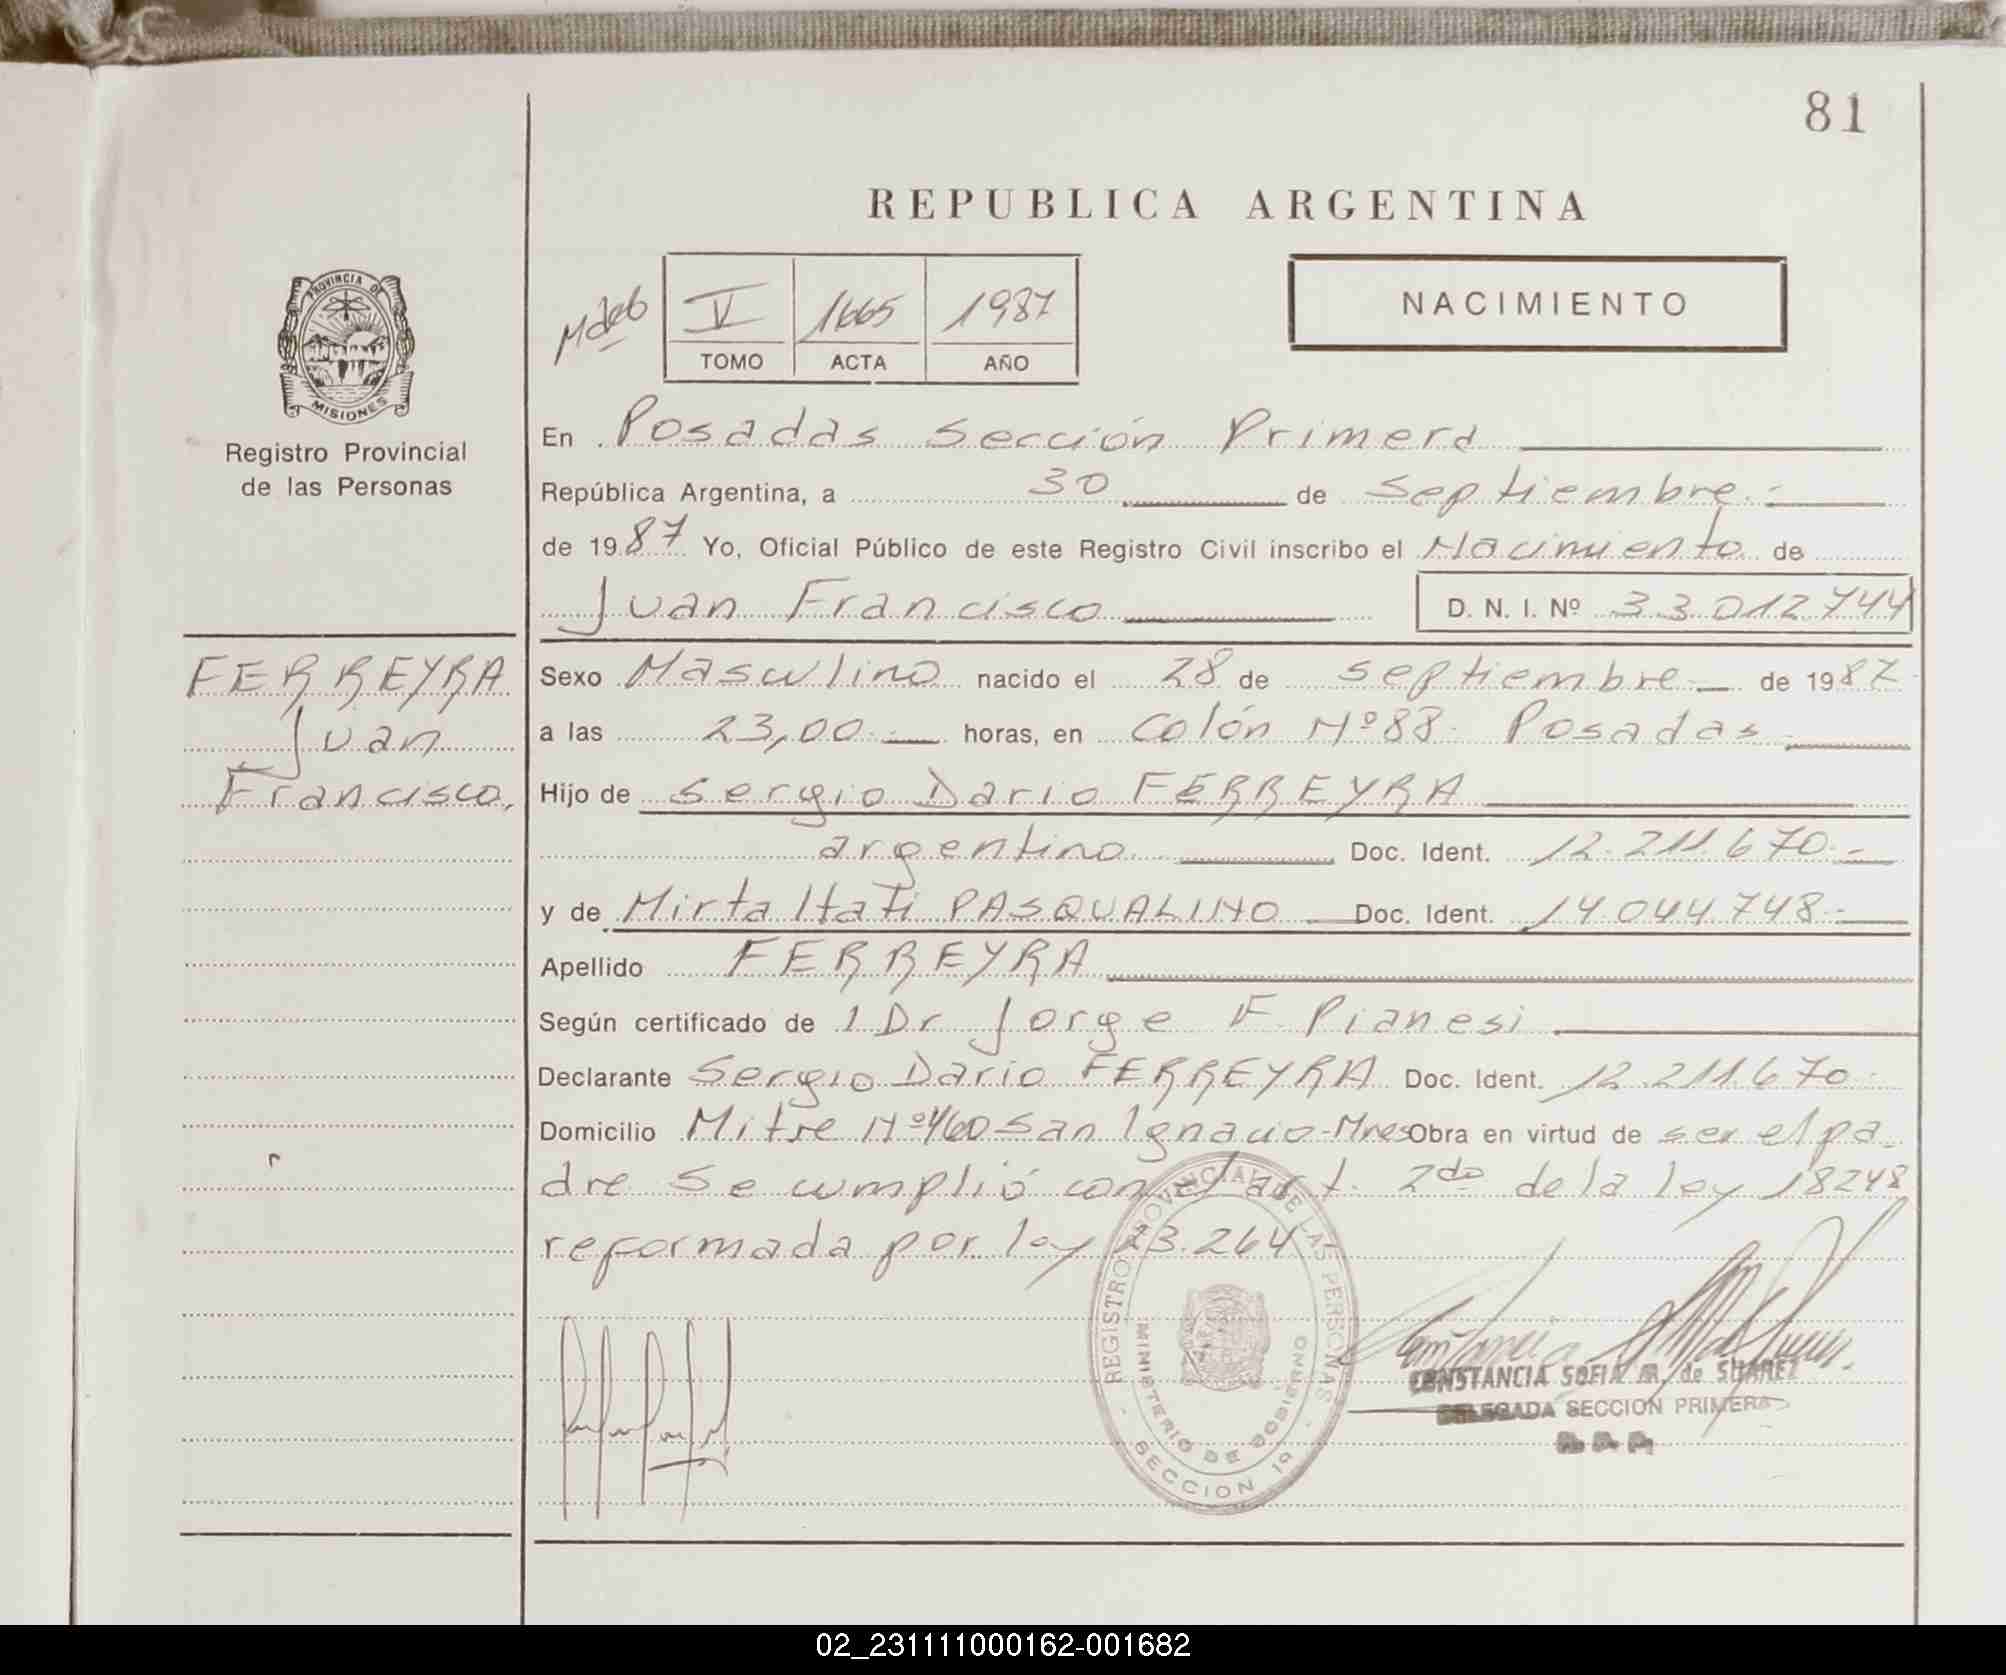 81
REPUBLICA ARGENTINA
V 1665 1987
TOMO ACTA AÑO
NACIMIENTO
PROVINCIA D
MISIONES
Registro Provincial
de las Personas
En Posadas Sección Primera
República Argentina, a 30 de septiembre.-
de 1987 Yo, Oficial Público de este Registro Civil inscribo el Nacimiento de
Juan Francisco D. N. I. Nº 33.012.744
FERREYRA
Juan
Francisco.
Sexo Masculino nacido el 28 de septiembre de 1987
a las 23,00.- horas, en Colón Nº 88. Posadas
Hijo de Sergio Dario FERREYRA
argentino Doc. Ident. 12.211.670.-
y de Mirta Itatí PASQUALINO Doc. Ident. 14.044.748.-
Apellido FERREYRA
Según certificado de 1 Dr Jorge F. Pianesi
Declarante Sergio Dario FERREYRA Doc. Ident. 12.211.670.
Domicilio Mitre Nº 460 San Ignacio-Mnes Obra en virtud de ser el pa-
dre Se cumplió con el art. 2do de la ley 18248
reformada por ley 23.264
REGISTRO PROVINCIAL DE LAS PERSONAS
MINISTERIO DE GOBIERNO
SECCION 1ª
CONSTANCIA SOFIA M. de SUAREZ
DELEGADA SECCION PRIMERA
02_231111000162-001682